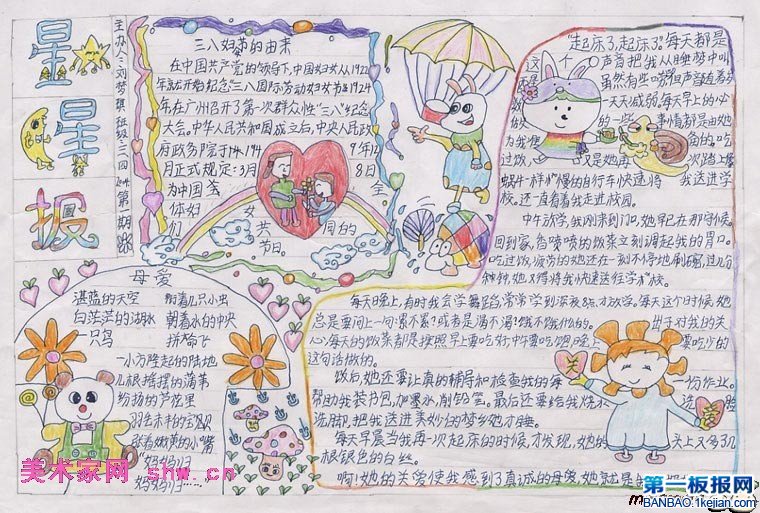 星星报
主办人:刘梦琪
三八妇节的由来
在中国共产党的领导下,中国妇女从1924
年就开始纪念三八国际劳动妇女节。1924
年在广州召开了第一次群众性"三八"纪念
大会。中华人民共和国成立后,中央人民政
府政务院于1949年12
月正式规定:3月8日
为中国
妇女
们共同的
节日。
母爱
湛蓝的天空
附着几只小虫
白茫茫的湖水
朝着水的中央
一只鸟
拼命飞
一小方隆起的陆地
几根摇摆的蒲苇
纷扬的芦花里
张着嫩黄的小嘴
"妈妈归
妈妈归
"起床了,起床了。"每天都是
这个声音把我从睡梦中叫
虽然有些唠叨但声音在着
一天天减弱,每天早上的
事情都是由她
为我
过饭,又是她再一次踏上
蜗牛一样慢的自行车快速将我送进学
校。还一直看着我走进校园。
中午放学,我刚来到门口,她早已在那守候。
回到家,香喷喷的饭菜立刻调起我的胃口。
吃过饭,疲劳的她还在一刻不停地刷碗,过几分
钟,她又得将我快速送往学校。
每天晚上,有时我会学舞蹈,常常学到深夜8点才放学。每天这个时候,她
总是要问上一句:累不累?或者是渴不渴?饿不饿什么的。出于对我的关
心,每天的饭菜都是按照早上要吃好,中午要吃饱,晚上要吃少的
这句话做的。
饭后,她还要认真的辅导和检查我的每一份作业。
帮助我装书包,加墨水,削铅笔。最后还要给我烧水洗脸
洗脚,把我送进美妙的梦乡她才睡。
每天早晨当我再一次起床的时候,才发现,她的头上又多了几
根银色的白丝。
啊!她的关爱使我感到了真诚的母爱,她就是
关
爱
美术家网 shw.cn
第一板报网
BANBAO.1kejian.com